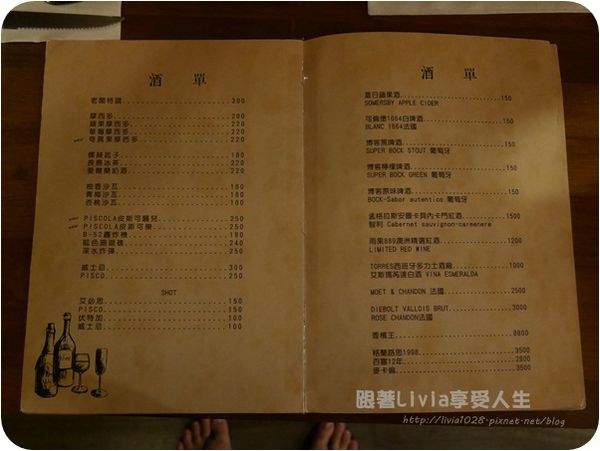 酒 單
老闆特調 300
摩西多 200
蘋果摩西多 220
草莓摩西多 220
奇異果摩西多 220
螺絲起子 180
長島冰茶 220
愛爾蘭奶酒 220
柚香沙瓦 160
青梅沙瓦 160
杏桃沙瓦 160
PISCOLA皮斯可 250
PISCOLA皮斯可樂 250
B-52轟炸機 180
藍色珊瑚礁 240
深水炸彈 250
威士忌 300
PISCO 250
SHOT
艾必思 150
PISCO 150
伏特加 100
威士忌 100
酒 單
夏日蘋果酒 150
SOMERSBY APPLE CIDER
可倫堡1664白啤酒 150
BLANC 1664法國
博客黑啤酒 150
SUPER BOCK STOUT 葡萄牙
博客檸檬啤酒 150
SUPER BOCK GREEN 葡萄牙
博客原味啤酒 150
BOCK-Sabor autentico 葡萄牙
孟格拉斯安圖卡貝內卡門紅酒 1500
智利 Cabernet sauvignon-carmenere
雨果889澳洲精選紅酒 1200
LIMITED RED WINE
TORRES西班牙多力士酒廠 1000
艾斯瑪芮達白酒 VINA ESMERALDA
MOET & CHANDON 法國 2500
DIEBOLT VALLOIS BRUT 3000
ROSE CHANDON法國
香檳王 8800
格蘭路思1998 3500
百富12年 2800
麥卡倫 3500
跟著Livia享受人生
http://livia1028.pixnet.net/blog